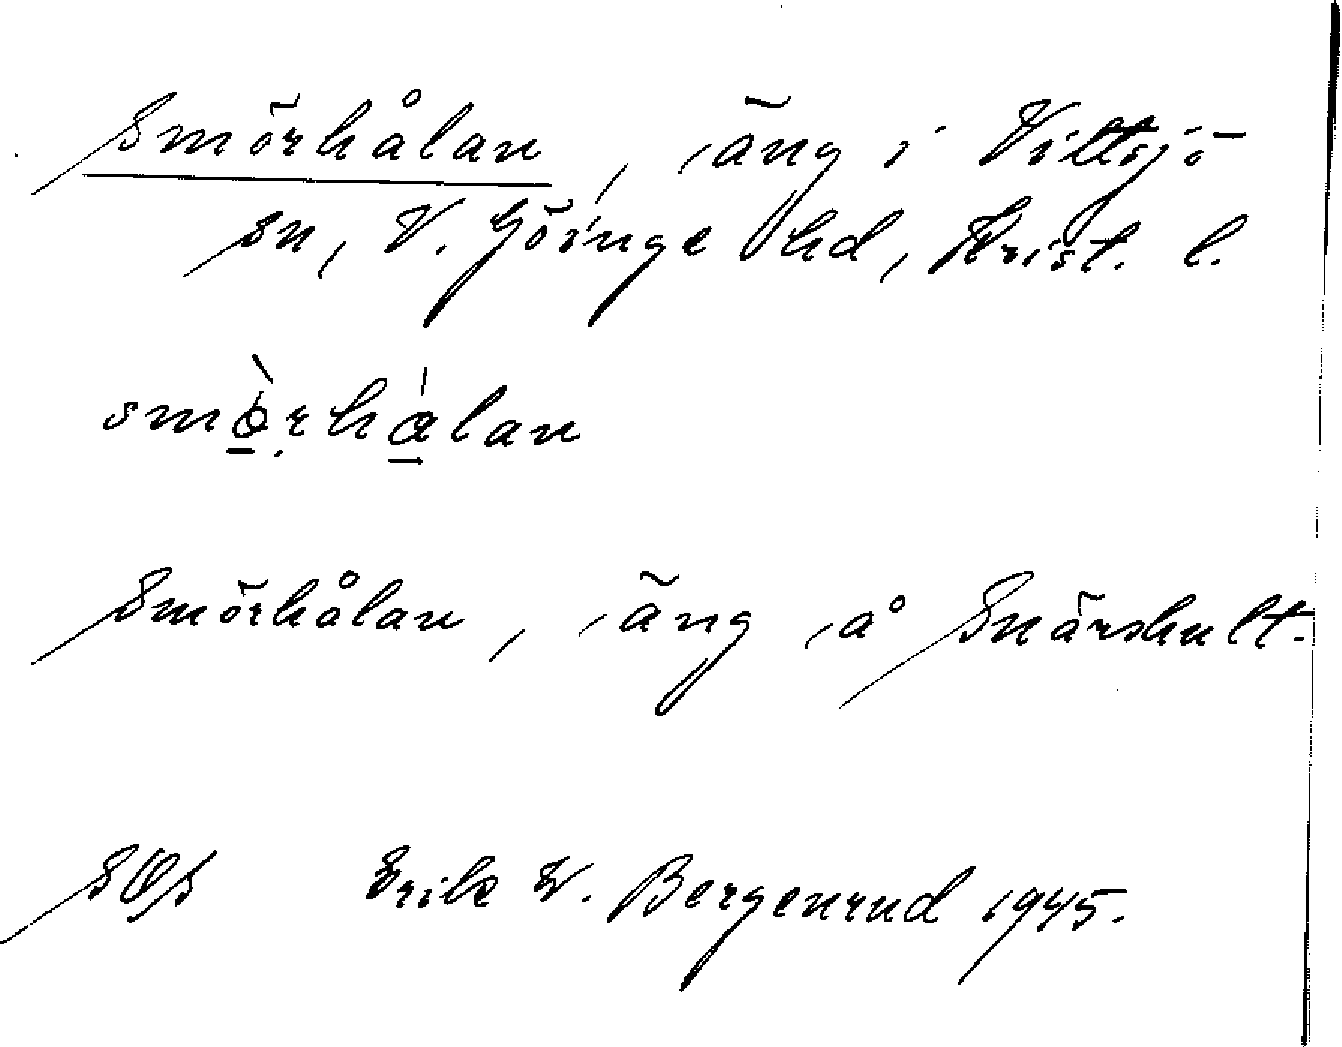 Smörhålan, äng i Vittsjö
sn, V. Göinge hd, Krist. l.
smò̱rhá̱lan
Smörhålan, äng å Snärshult.
SOS Erik W. Bergenrud 1945.